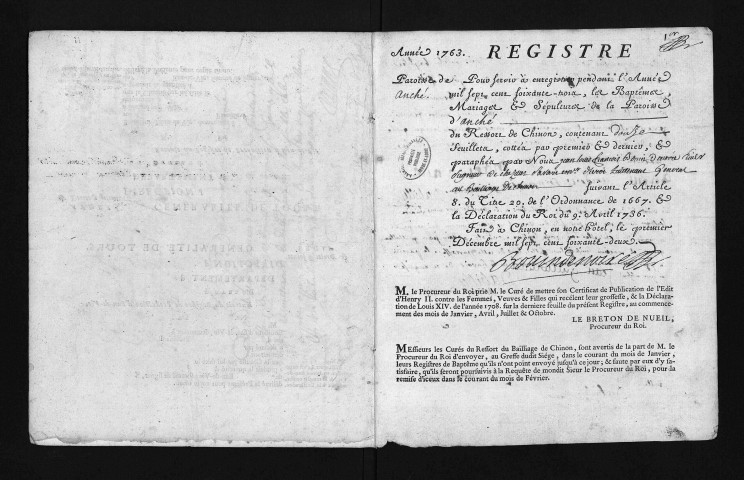 1er
Année 1763. REGISTRE
Paroisse de Anché.
Pour servir à enregistrer pendant l'Année
mil sept cent soixante-trois, les Baptêmes,
Mariages & Sépultures de la Paroisse
d'anché
du Ressort de Chinon, contenant
feuillets, cottés par premier & dernier, &
paraphés par Nous
Lieutenant Général
au Bailliage de Chinon suivant l'Article
8. du Titre 20. de l'Ordonnance de 1667. &
la Déclaration du Roi du 9. Avril 1736.
Fait à Chinon, en notre hôtel, le premier
Décembre mil sept cent soixante-deux.
M. le Procureur du Roi prie M. le Curé de mettre son Certificat de Publication de l'Edit
d'Henry II. contre les Femmes, Veuves & Filles qui recélent leur grossesse, & la Déclara-
tion de Louis XIV. de l'année 1708. sur la derniere feuille du présent Registre, au commence-
ment des mois de Janvier, Avril, Juillet & Octobre.
LE BRETON DE NUEIL,
Procureur du Roi.
MEssieurs les Curés du Ressort du Bailliage de Chinon, sont avertis de la part de M. le
Procureur du Roi d'envoyer, au Greffe dudit Siége, dans le courant du mois de Janvier,
leurs Registres de Baptême qu'ils n'ont point envoyé jusqu'à ce jour; & faute par eux d'y sa-
tisfaire, qu'ils seront poursuivis à la Requête de mondit Sieur le Procureur du Roi, pour la
remise d'iceux dans le courant du mois de Février.